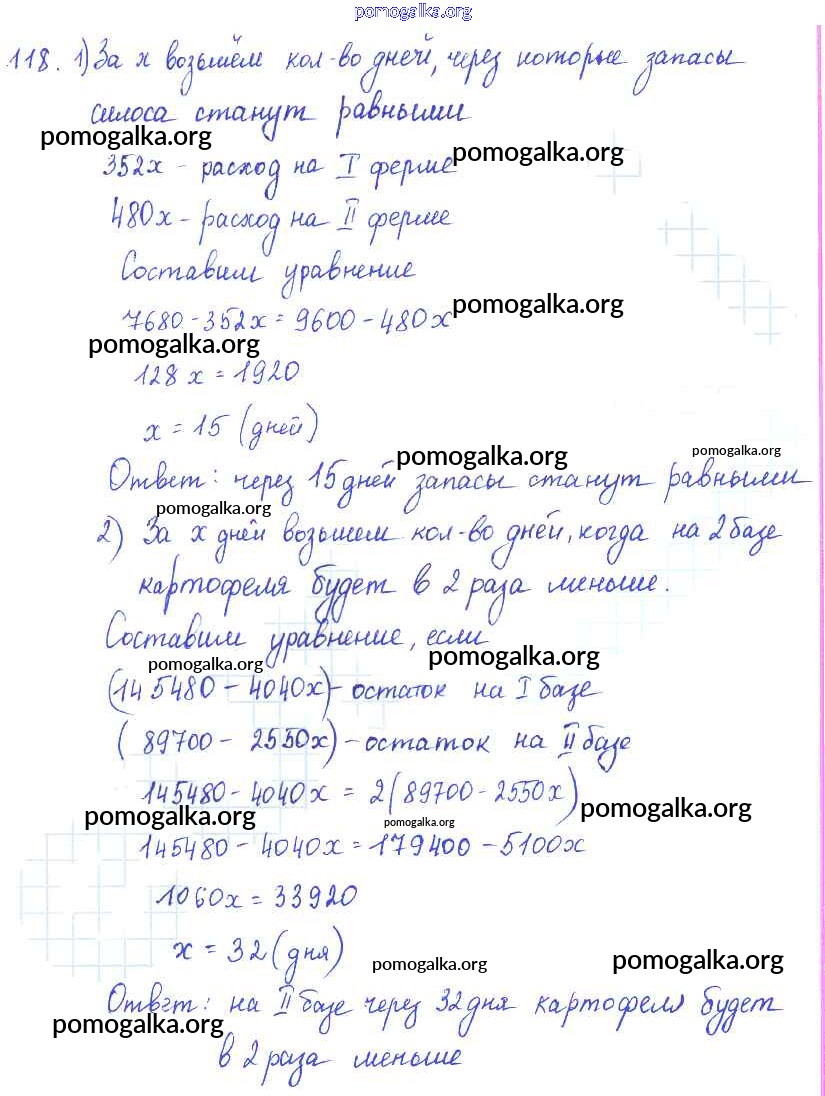 pomogalka.org
118. 1) За x возьмём кол-во дней, через которые запасы
силоса станут равными
pomogalka.org
pomogalka.org
352x - расход на I ферме
480x - расход на II ферме
Составим уравнение
pomogalka.org
7680 - 352x = 9600 - 480x
pomogalka.org
128x = 1920
x = 15 (дней)
pomogalka.org
pomogalka.org
Ответ: через 15 дней запасы станут равными
pomogalka.org
2) За x дней возьмем кол-во дней, когда на 2 базе
картофеля будет в 2 раза меньше.
Составим уравнение, если
pomogalka.org
pomogalka.org
(145480 - 4040x) - остаток на I базе
(89700 - 2550x) - остаток на II базе
145480 - 4040x = 2(89700 - 2550x)
pomogalka.org
pomogalka.org
pomogalka.org
145480 - 4040x = 179400 - 5100x
1060x = 33920
x = 32 (дня)
pomogalka.org
pomogalka.org
Ответ: на II базе через 32 дня картофеля будет
pomogalka.org
в 2 раза меньше